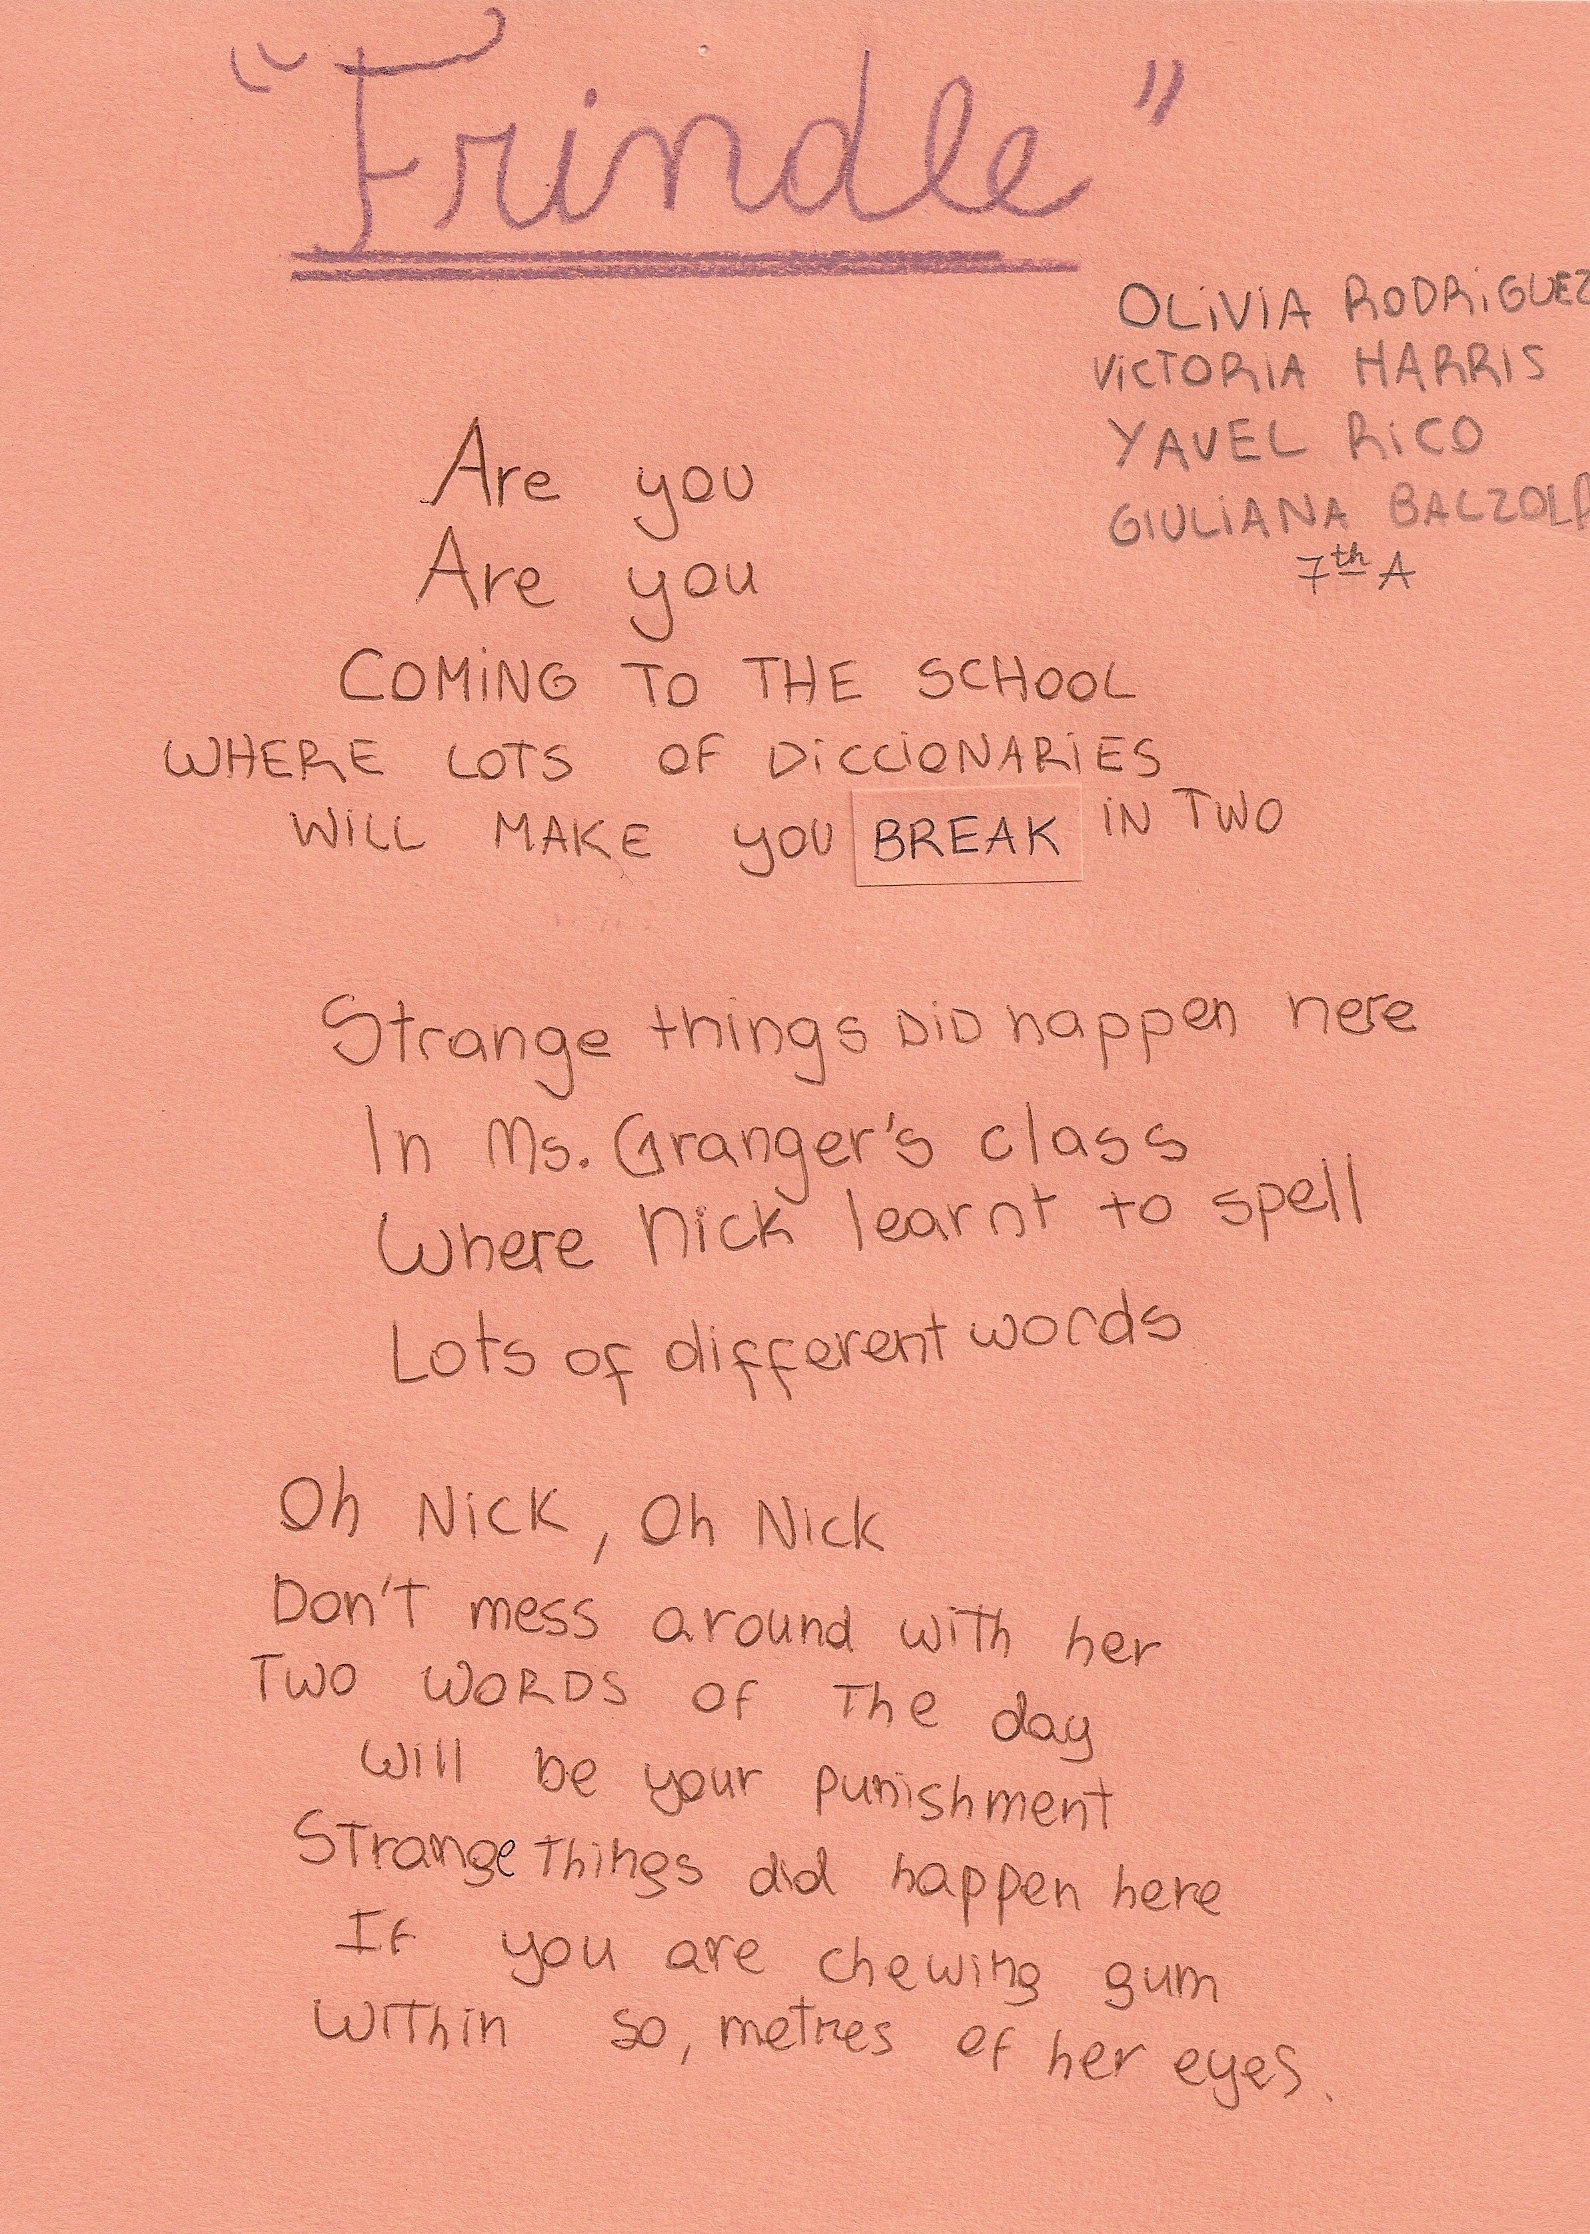 "Frindle"
OLiViA RODRiGUEZ
ViCTORiA HARRIS
YAVEL RiCO
GIULiANA BALZOLA
7th A
Are you
Are you
COMiNG TO THE SCHOOL
WHERE LOTS OF DiCCiONARiES
WiLL MAKE YOU BREAK iN TWO
Strange things DiD happen here
In Ms. Granger's class
Where Nick learnt to spell
Lots of different words
Oh NicK, Oh Nick
Don't mess around with her
TWO WORDS OF The day
will be your punishment
Strange things did happen here
IF you are chewing gum
Within 50, metres of her eyes.